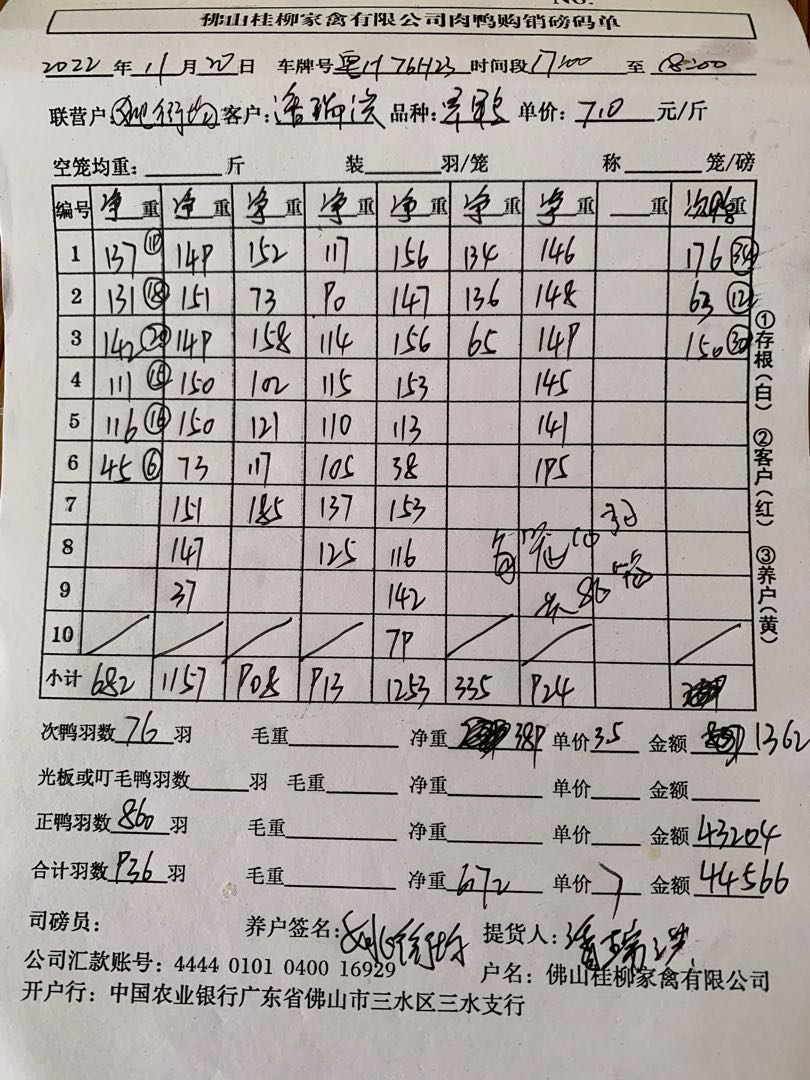 NO.
佛山桂柳家禽有限公司肉鸭购销磅码单
2022 年 11 月 20 日 车牌号 粤H 76H23 时间段 17:00 至 18:00
联营户 客户: 潘瑞洪 品种: 单价: 7.0 元/斤
空笼均重: 斤 装 羽/笼 称 笼/磅
编号 净重 净重 净重 净重 净重 净重 净重 重 次鸭重
1 137 ⑱ 149 152 117 156 134 146 176 ㉞
2 131 ⑱ 151 73 90 147 136 148 63 ⑫
3 142 ⑳ 149 158 114 156 65 149 150 ㉚
4 111 ⑮ 150 102 115 153 145
5 116 ⑯ 150 121 110 113 141
6 45 ⑥ 73 117 105 38 195
7 151 185 137 153
8 147 125 116
9 37 142
10 79
小计 682 1157 908 913 1253 335 924
次鸭羽数 76 羽 毛重 净重 389 单价 3.5 金额 1362
光板或叮毛鸭羽数 羽 毛重 净重 单价 金额
正鸭羽数 860 羽 毛重 净重 单价 金额 43204
合计羽数 936 羽 毛重 净重 6172 单价 7 金额 44566
司磅员: 养户签名: 提货人: 潘瑞洪
公司汇款账号: 4444 0101 0400 16929 户名: 佛山桂柳家禽有限公司
开户行: 中国农业银行广东省佛山市三水区三水支行
①存根(白) ②客户(红) ③养户(黄)